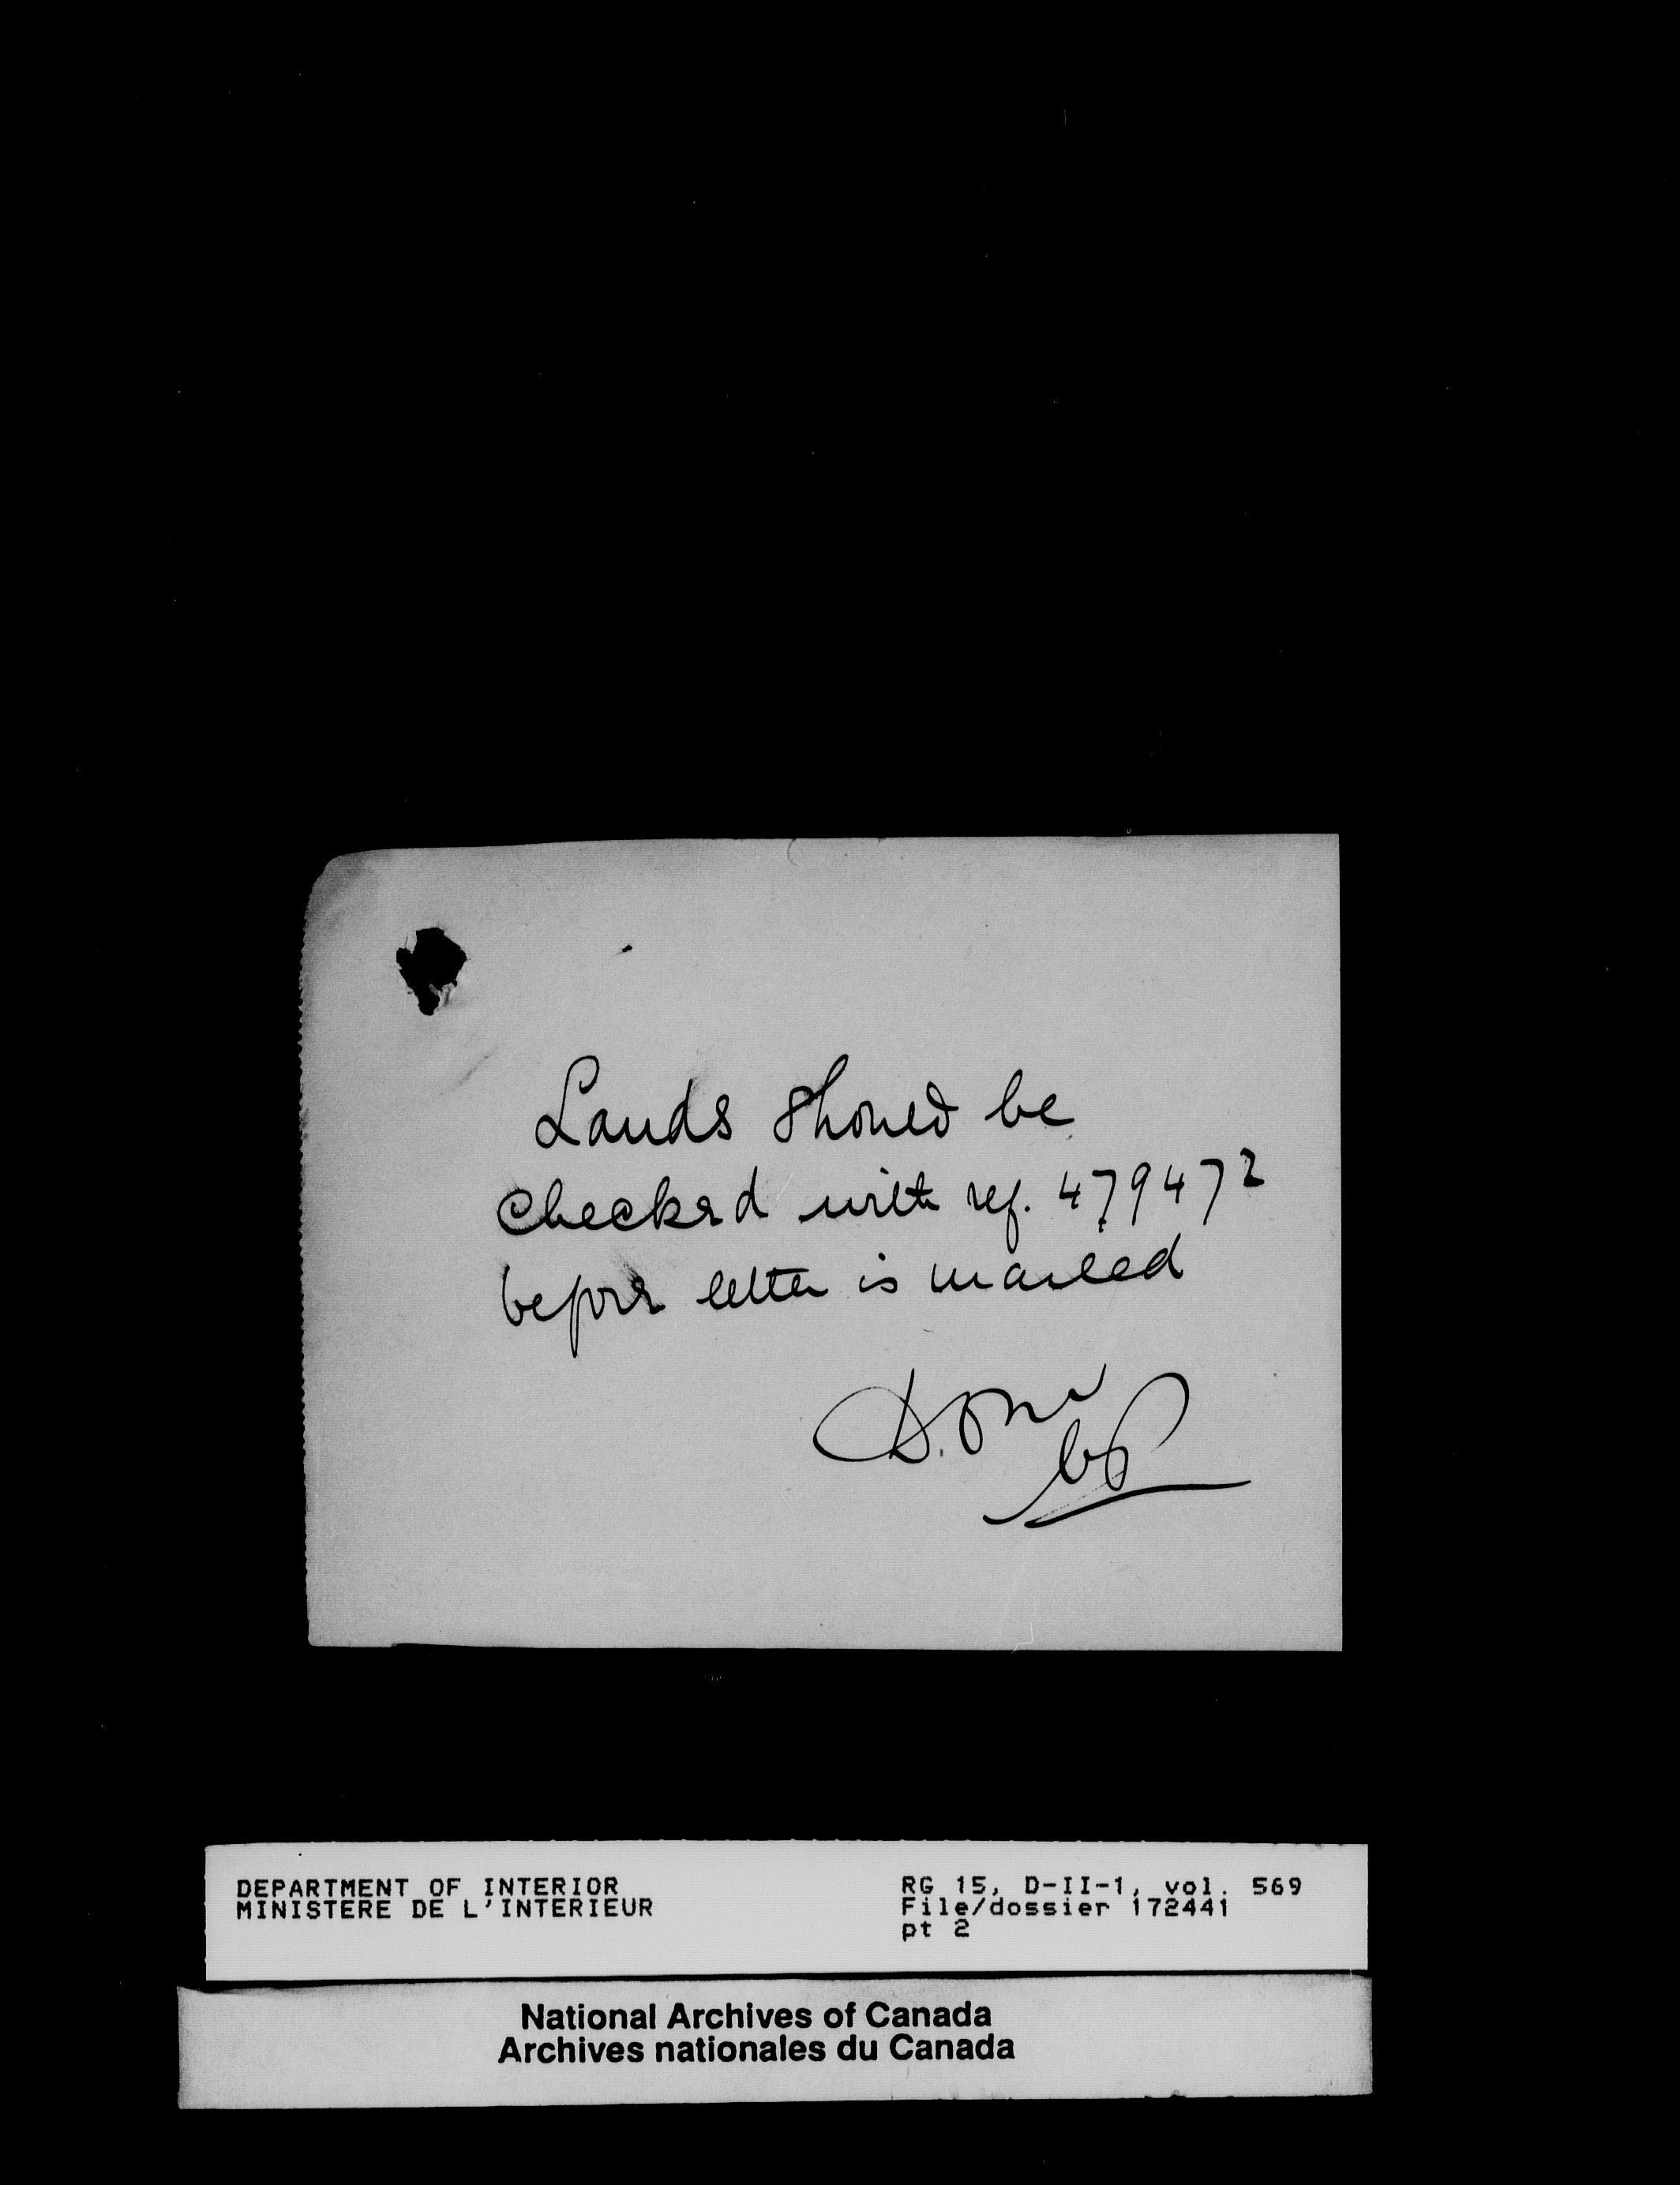 Lands should be
checked with ref. 479472
before letter is mailed
DEPARTMENT OF INTERIOR
MINISTERE DE L'INTERIEUR
RG 15, D-II-1, vol. 569
File/dossier 172441
pt 2
National Archives of Canada
Archives nationales du Canada